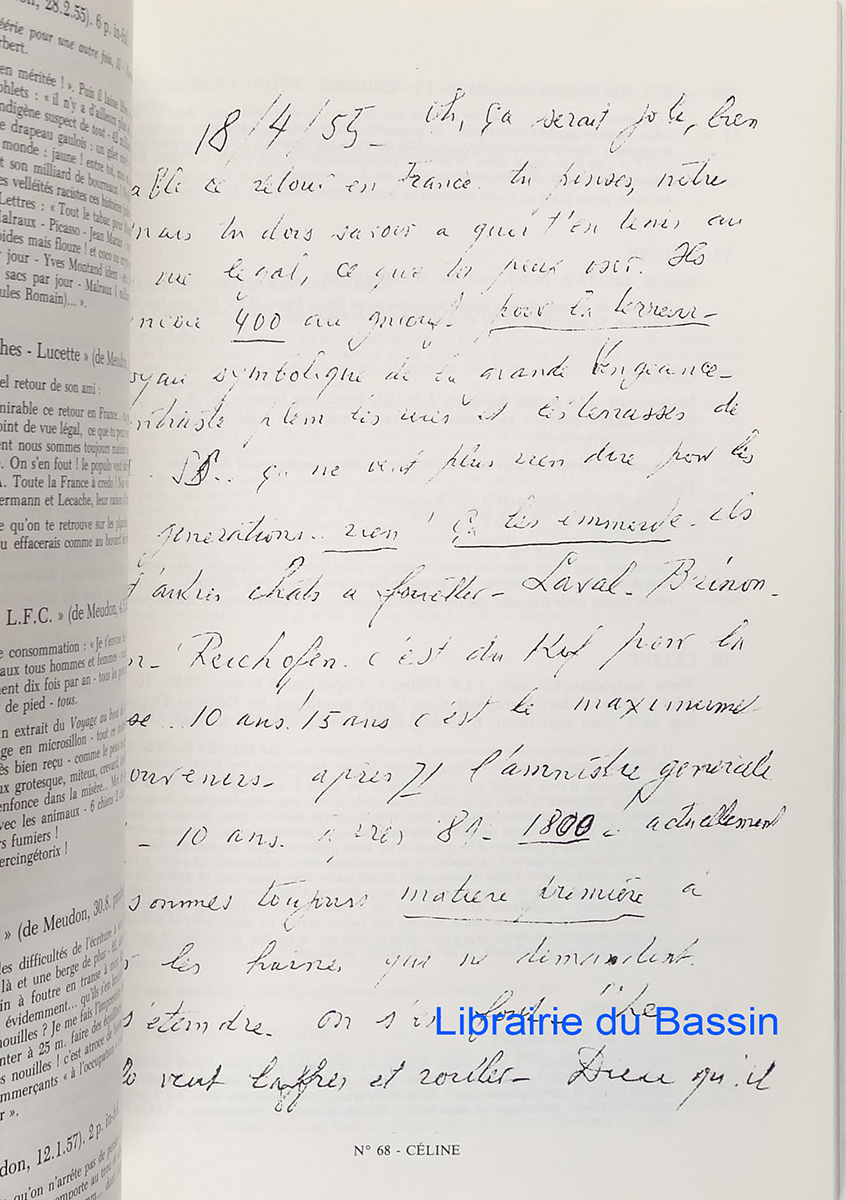 on, 28.2.55). 6 p. in-fol.
éérie pour une autre fois, II
bert.
en méritée ! ». Puis il
phlets : « il n'y a d'ailleurs
ndigène suspect de tout - 40
e drapeau gaulois : un gilet
monde : jaune ! entre
t son milliard de bourreaux !
es velléités racistes ces histoires
Lettres : « Tout le tabac pour
Malraux - Picasso - Jean Marais
ides mais flouze ! et coco ou
jour - Yves Montand idem
sacs par jour - Malraux 1
ules Romain)... ».
hes - Lucette » (de Meudon,
el retour de son ami :
mirable ce retour en France...
oint de vue légal, ce que tu peux
ent nous sommes toujours matière
. On s'en fout ! le populo veut
A. Toute la France à credo !
ermann et Lecache, leur raison
e qu'on te retrouve sur les
u effacerais comme au buvard
L.F.C. » (de Meudon, 4.
e consommation : « Je t'envoie
aux tous hommes et femmes
ment dix fois par an - tous les
de pied - tous.
n extrait du Voyage au bout de
ge en microsillon - tout ce
ès bien reçu - comme le peu
ux grotesque, miteux, crevard,
enfonce dans la misère...
vec les animaux - 6 chiens 2
rs fumiers !
ercingétorix !
» (de Meudon, 30.8.
les difficultés de l'écriture à
là et une berge de plus
in à foutre en transe à
évidemment... qu'ils s'en
nouilles ? Je me fais l'impression
nter à 25 m. faire des
s nouilles ! c'est atroce de
mmerçants « à l'occupation
r ».
don, 12.1.57). 2 p. in-fol.
qu'on n'arrête pas de
emporte au trou et
18/4/55 - Oh, ça serait joli, bien
able ce retour en France. tu penses, notre
mais tu dois savoir a quoi t'en tenir au
vue legal, ce que tu peux oser. Ils
encore 400 au gnouf pour la terreur -
oyau symbolique de la grande Vengeance -
contraste plein les rues et les terrasses de
SS.. ça ne veut plus rien dire pour les
generations.. rien ! ça les emmerde. ils
d'autres chats a fouetter - Laval - Brinon -
n - Reichofen. c'est du Kif pour la
se.. 10 ans ! 15 ans c'est le maximum
ouvenirs - apres 71 l'amnistie generale
- 10 ans. apres 81 - 1800. actuellement
sommes toujours matiere première à
les haines qui ne demandent
s'eteindre. on s'en fout - ! Le
lo veut baffrer et rouler - Dieu qu'il
Librairie du Bassin
N° 68 - CÉLINE